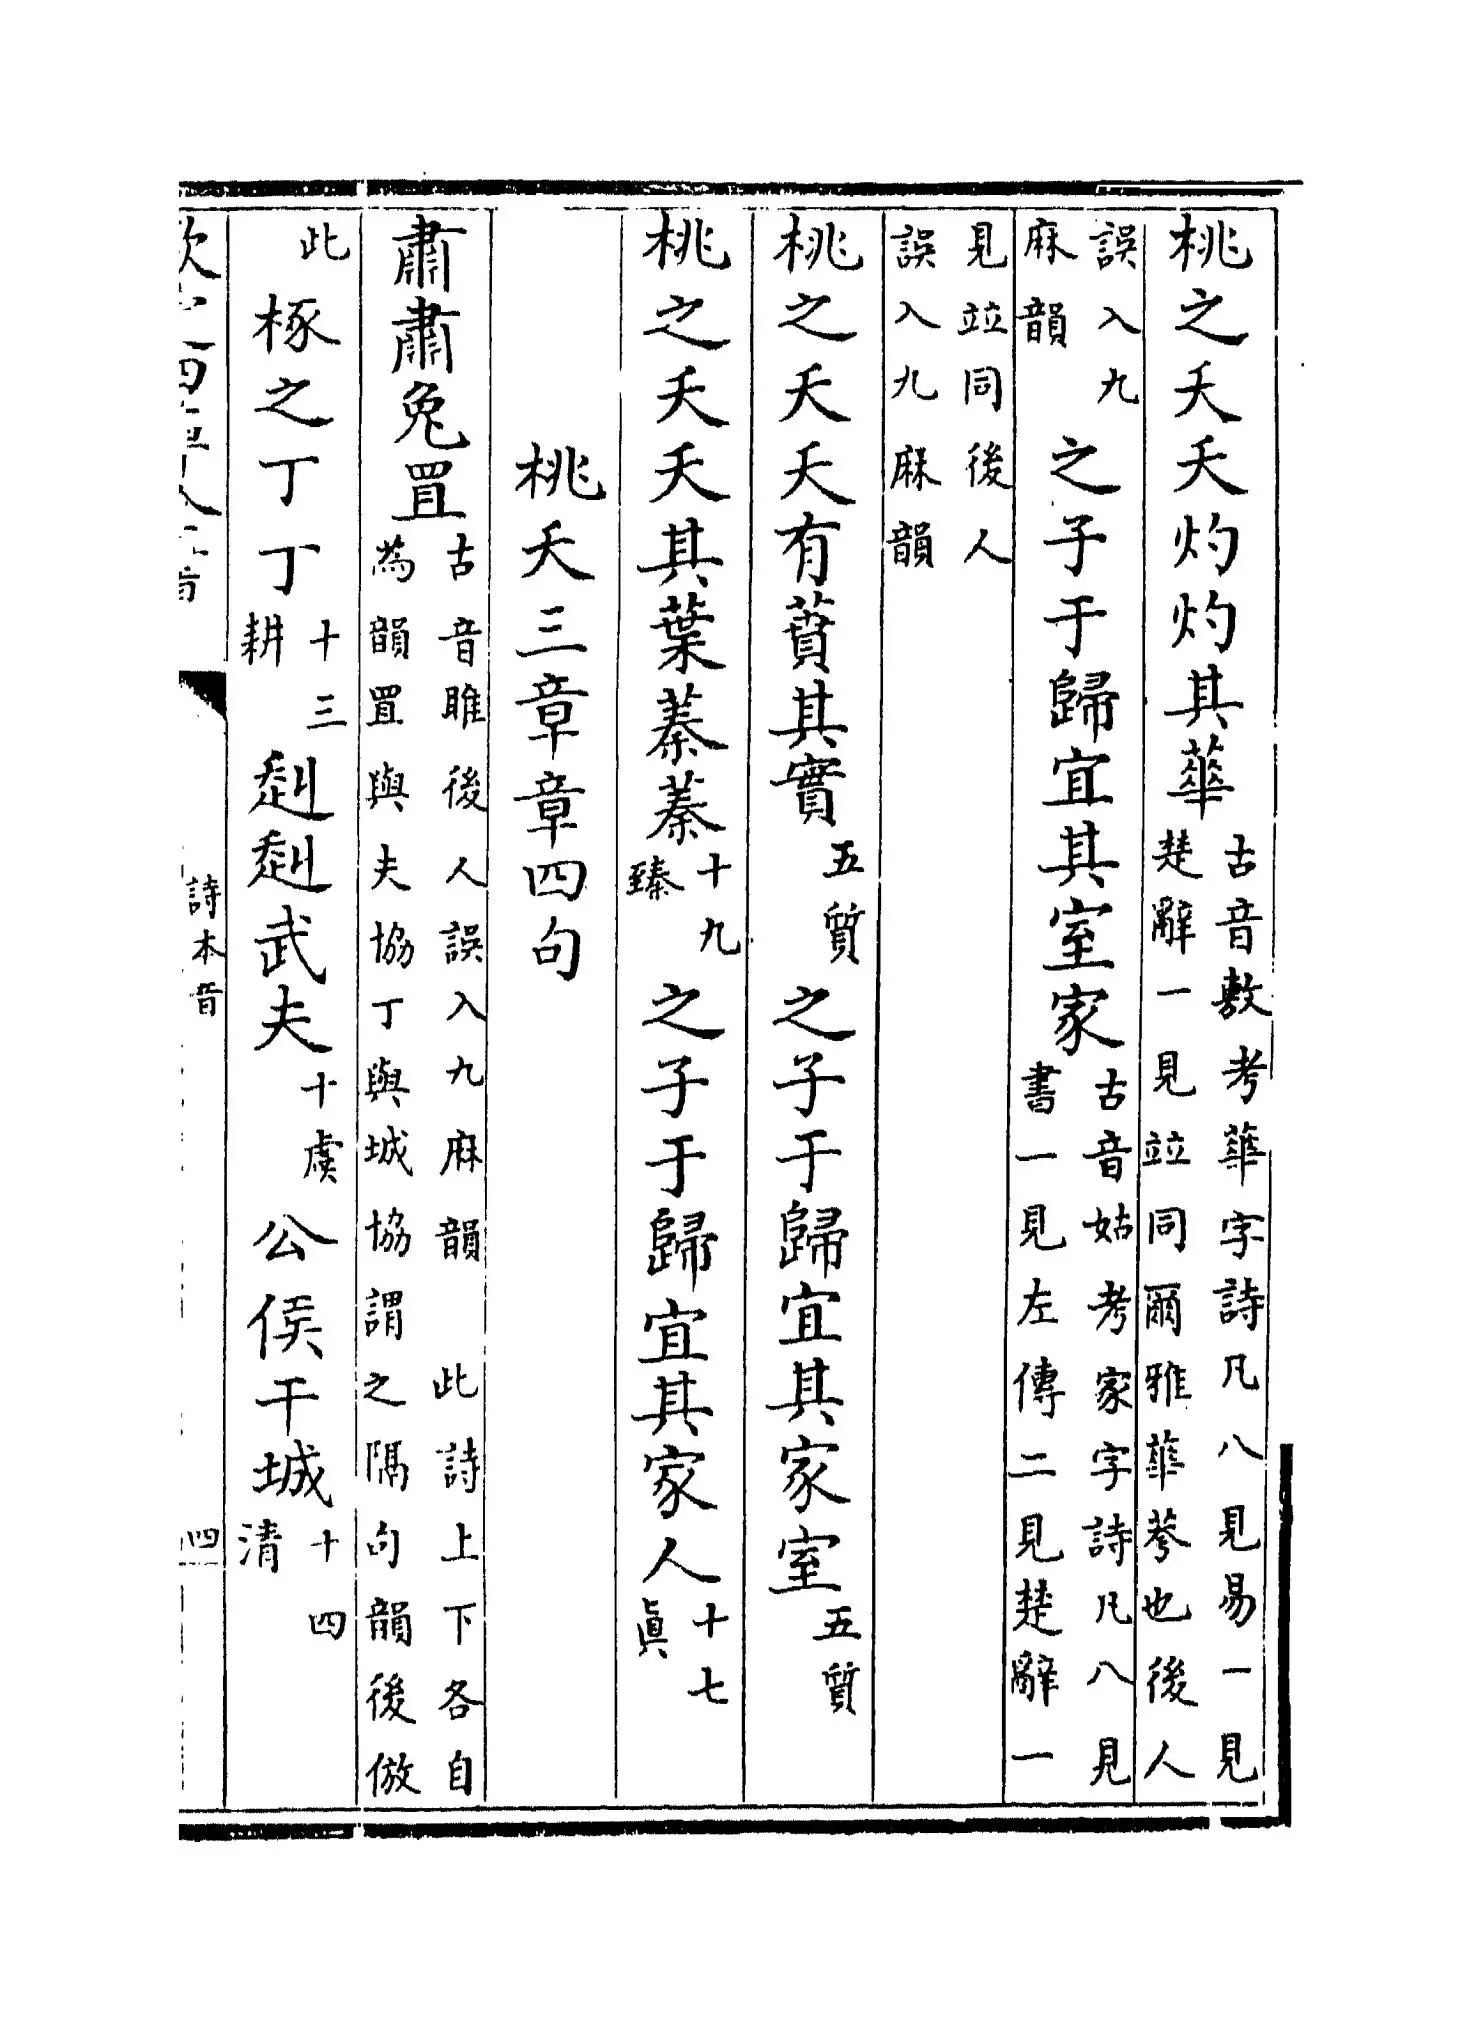 桃之夭夭灼灼其華古音敷考華字詩凡八見易一見楚辭一見竝同爾雅華荂也後人
誤入九麻韻之子于歸宜其室家古音姑考家字詩凡八見書一見左傳二見楚辭一
見竝同後人誤入九麻韻
桃之夭夭有蕡其實五質之子于歸宜其家室五質
桃之夭夭其葉蓁蓁十九臻之子于歸宜其家人十七眞
桃夭三章章四句
肅肅兔罝古音雎後人誤入九麻韻 此詩上下各自為韻罝與夫協丁與城協謂之隔句韻後倣
此椓之丁丁十三耕赳赳武夫十虞公侯干城十四清
詩本音
四